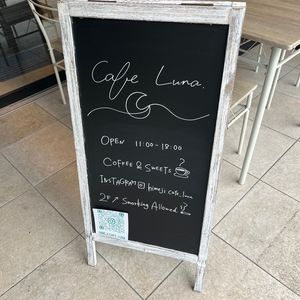 Cafe Luna.
OPEN 11:00-18:00
COFFEE & SWEETS
INSTAGRAM @himeji_cafe_luna
2F ↗ Smoking Allowed